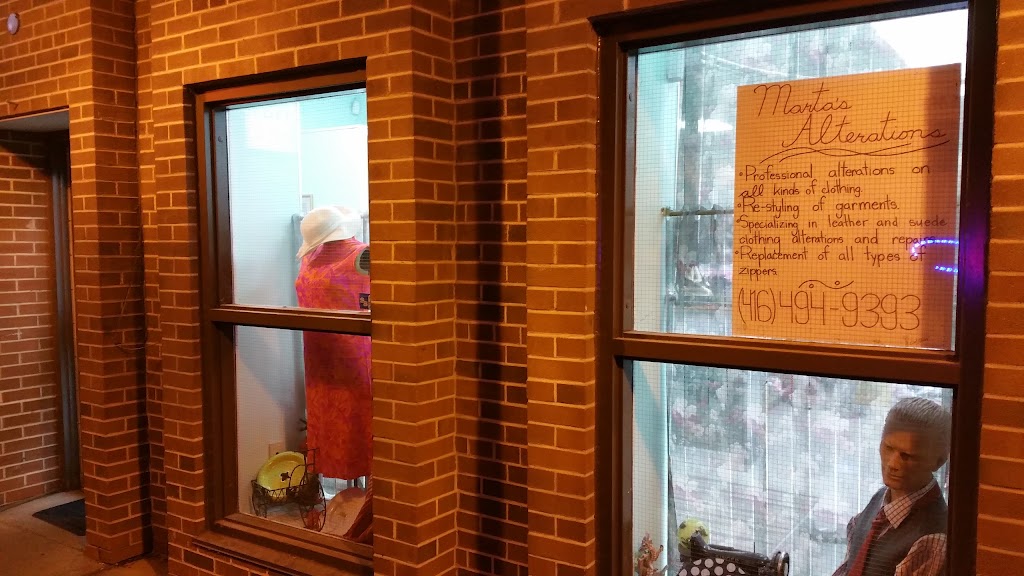 Marta's
Alterations
•Professional alterations on
all kinds of clothing.
•Re-styling of garments.
•Specializing in leather and suede
clothing alterations and repairs
•Replacement of all types of
zippers.
(416)494-9393